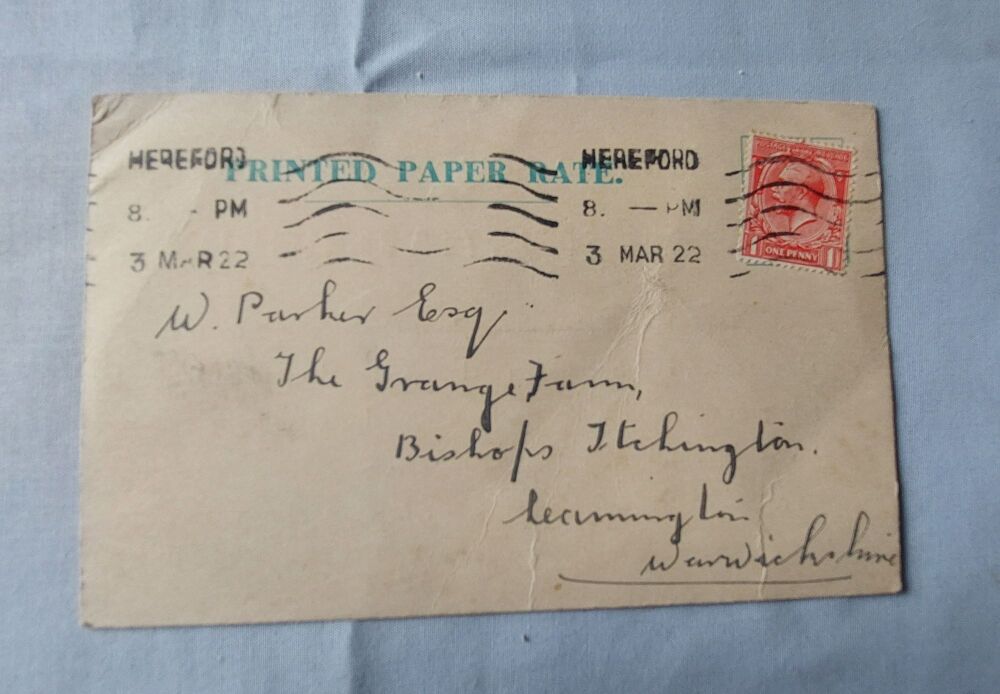 PRINTED PAPER RATE.
HEREFORD HEREFORD
8. — PM 8. — PM
3 MAR 22 3 MAR 22
POSTAGE REVENUE
1 ONE PENNY 1
W. Parker Esq.
The Grange Farm,
Bishops Itchington.
Leamington
Warwickshire